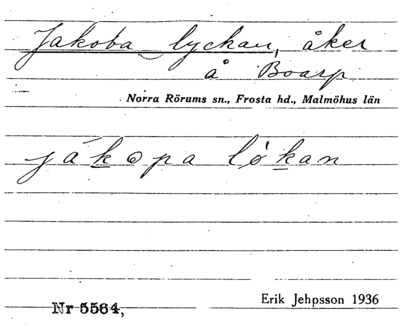 Jakoba lyckan, åker
å Boarp
Norra Rörums sn., Frosta hd., Malmöhus län
jákopa lǿkan
Erik Jehpsson 1936
Nr 5564,